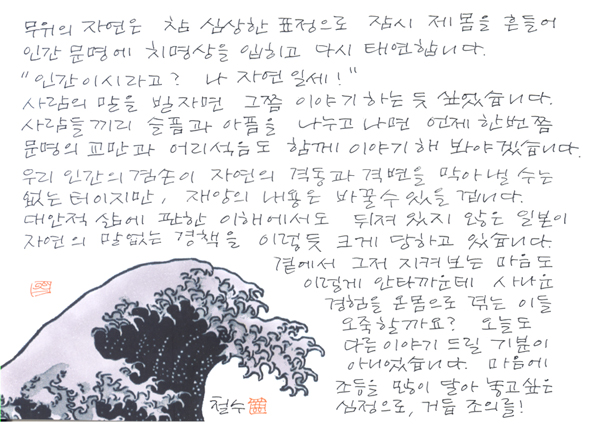 무위의 자연은 참 심상한 표정으로 잠시 제 몸을 흔들어
인간 문명에 치명상을 입히고 다시 태연합니다.
"인간이시라고? 나 자연일세!"
사람의 말을 빌자면 그쯤 이야기하는 듯 싶었습니다.
사람들끼리 슬픔과 아픔을 나누고 나면 언제 한번쯤
문명의 교만과 어리석음도 함께 이야기해 봐야겠습니다.
우리 인간의 겸손이 자연의 격동과 격변을 막아낼 수는
없는 터이지만, 재앙의 내용은 바꿀 수 있을 겁니다.
대안적 삶에 관한 이해에서도 뒤져 있지 않은 일본이
자연의 말없는 경책을 이렇듯 크게 당하고 있습니다.
곁에서 그저 지켜보는 마음도
이렇게 안타까운데 사나운
경험을 온몸으로 겪는 이들
오죽할까요? 오늘도
다른 이야기 드릴 기분이
아니었습니다. 마음에
조등을 많이 달아 놓고 싶은
심정으로, 거듭 조의를!
철수